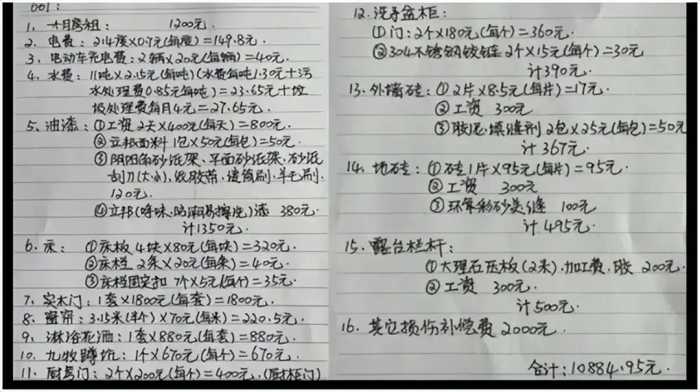 001:
1、一个月房租: 1200元.
2、电费: 214度×0.7元(每度)=149.8元.
3、电动车充电费: 2辆×20元(每辆)=40元.
4、水费: 11吨×2.15元(每吨)(水费每吨1.30元+污
水处理费0.85元每吨)=23.65元+垃
圾处理费每月4元=27.65元.
5、油漆: ①工资2天×400元(每天)=800元.
②立邦面料1包×50元(每包)=50元.
③阴阳角砂纸架、平面砂纸架、砂纸
刮刀(大小)、纸胶带、滚筒刷、羊毛刷.
120元.
④立邦(净味、防潮易擦洗)漆 380元.
计1350元.
6、床: ①床板4块×80元(每块)=320元.
②床档2条×20元(每条)=40元.
③床档固定扣7个×5元(每个)=35元.
7、实木门: 1套×1800元(每套)=1800元.
8、窗帘: 3.15米(半个)×70元(每米)=220.5元.
9、淋浴花洒: 1套×880元(每套)=880元.
10、九牧蹲坑: 1个×670元(每个)=670元.
11、厨房门: 2个×200元(每个)=400元.(厨柜门)
12、洗手盆柜:
①门: 2个×180元(每个)=360元.
②304不锈钢铰链2个×15元(每个)=30元
计390元.
13、外墙砖: ①2片×8.5元(每片)=17元.
②工资 300元
③胶泥、填缝剂2包×25元(每包)=50元
计367元.
14、地砖: ①砖1片×95元(每片)=95元.
②工资 300元
③环氧彩砂美缝 100元
计495元.
15、露台栏杆:
①大理石压板(2米)、加工费、胶 200元.
②工资 300元.
计500元.
16、其它损伤补偿费2000元.
合计: 10884.95元.